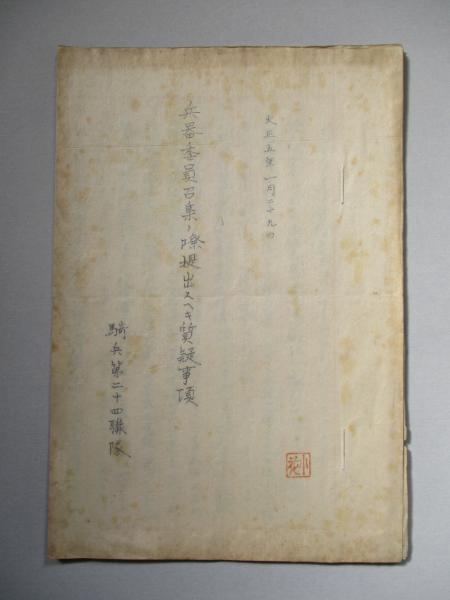 大正五年一月二十九日
兵器委員召集ノ際提出スヘキ質疑事項
騎兵第二十四聯隊